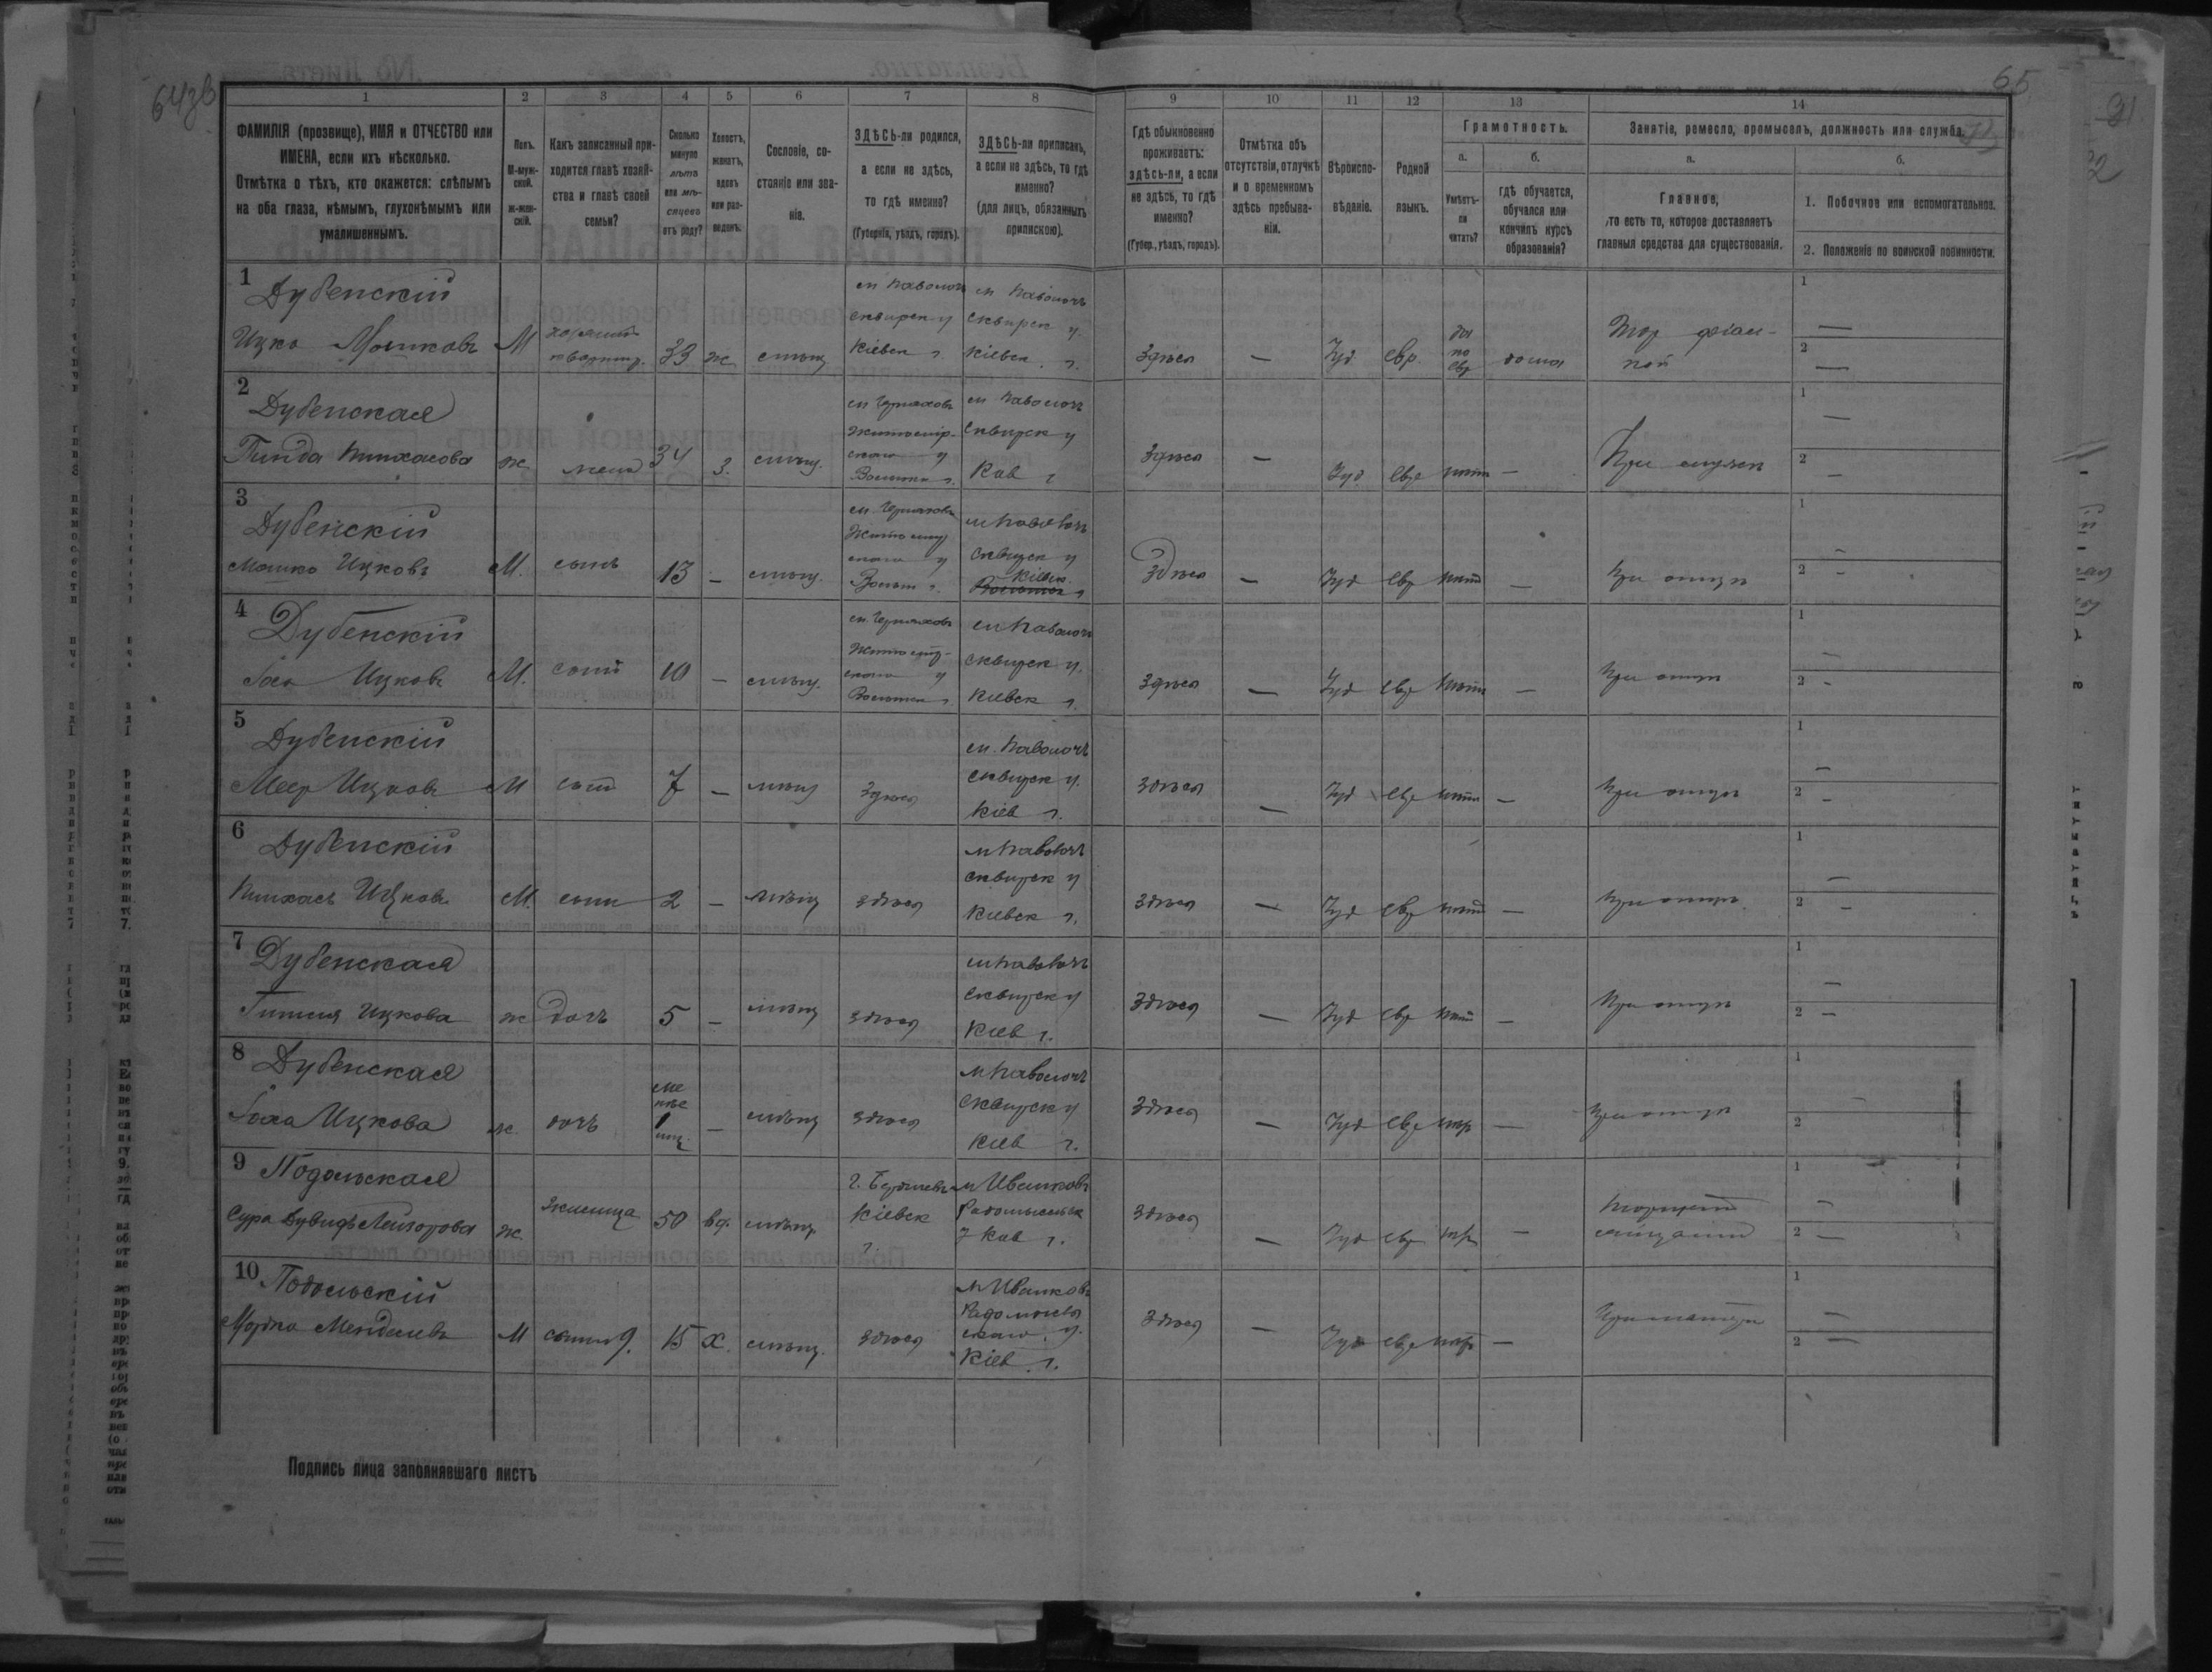 65
1 2 3 4 5 6 7 8 9 10 11 12 13 14
ФАМИЛІЯ (прозвище), ИМЯ и ОТЧЕСТВО или ИМЕНА, если ихъ нѣсколько.
Отмѣтка о тѣхъ, кто окажется: слѣпымъ на оба глаза, нѣмымъ, глухонѣмымъ или умалишеннымъ.
Полъ.
М-мужской.
ж-женскій.
Какъ записанный приходится главѣ хозяйства и главѣ своей семьи?
Сколько минуло лѣтъ или мѣсяцевъ отъ роду?
Холостъ, женатъ, вдовъ или разведенъ.
Сословіе, состояніе или званіе.
ЗДѢСЬ-ли родился, а если не здѣсь, то гдѣ именно?
(Губернія, уѣздъ, городъ).
ЗДѢСЬ-ли приписанъ, а если не здѣсь, то гдѣ именно?
(для лицъ, обязанныхъ припискою).
Гдѣ обыкновенно проживаетъ: здѣсь-ли, а если не здѣсь, то гдѣ именно?
(Губер., уѣздъ, городъ).
Отмѣтка объ отсутствіи, отлучкѣ и о временномъ здѣсь пребываніи.
Вѣроисповѣданіе.
Родной языкъ.
Грамотность.
а.
Умѣетъ-ли читать?
б.
гдѣ обучается, обучался или кончилъ курсъ образованія?
Занятіе, ремесло, промыселъ, должность или служба.
а.
Главное,
то есть то, которое доставляетъ главныя средства для существованія.
б.
1. Побочное или вспомогательное.
2. Положеніе по воинской повинности.
1 Дубенскій
м Паволочь м Паволочь
Сквирск у Сквирск у.
Ицко Мошковъ М хозяинъ квартир. 33 ж мѣщ Кіевск г. Кіевск г. Здѣсь — Іуд евр. да по евр дома
1 —
2 —
2 Дубенская
м Черняховъ м Паволочь
Житомірскаго у Сквирск у
Гинда Пинхасова ж жена 34 з. мѣщ. Волынск г. Кіев г Здѣсь — Іуд евр нѣтъ — При мужѣ
1 —
2 —
3 Дубенскій
м. Черняховъ м Паволочь
Житомирскаго у Сквирск у
Мошко Ицковъ М. сынъ 13 — мѣщ. Волын г. Кіевск г Здѣсь — Іуд евр нѣтъ — При отцѣ
1 —
2 —
4 Дубенскій
м. Черняховъ м Паволочь
Житомирскаго у Сквирск у.
Ицковъ М. сынъ 10 — мѣщ. Волынск г. Киевск г. Здѣсь — Іуд евр нѣтъ — При отцѣ
1 —
2 —
5 Дубенскій
м. Паволочь
Сквирск у.
Меер Ицковъ М сынъ 7 — мѣщ Здѣсь Кіев г. Здѣсь — Іуд евр нѣтъ — При отцѣ
1 —
2 —
6 Дубенскій
м Паволочь
Сквирск у
Пинхасъ Ицковъ М. сынъ 2 — мѣщ здѣсь Киевск г. Здѣсь — Іуд евр нѣтъ — При отцѣ
1 —
2 —
7 Дубенская
м Паволочь
Сквирск у
Ицкова ж дочь 5 — мѣщ здѣсь Киев г. Здѣсь — Іуд евр нѣтъ — При отцѣ
1 —
2 —
8 Дубенская
м Паволочь
Сквирск у
Ицкова ж. дочь менѣе 1 мѣц. — мѣщ здѣсь Киев г. Здѣсь — Іуд евр — При отцѣ
1 —
2
9 Подольская
г. Бердичевъ м Иванковъ
Сура Лейзорова ж жилица 50 вд. мѣщ. Кіевск г. Радомысльск у Кіев г. Здѣсь — Іуд евр —
1 —
2 —
10 Подольскій
м Иванковъ
Радомысльскаго у.
Мордко Менделевъ М сынъ 9. 15 х. мѣщ. здѣсь Кіев г. Здѣсь — Іуд евр — При матери
1 —
2 —
Подпись лица заполнявшаго листъ